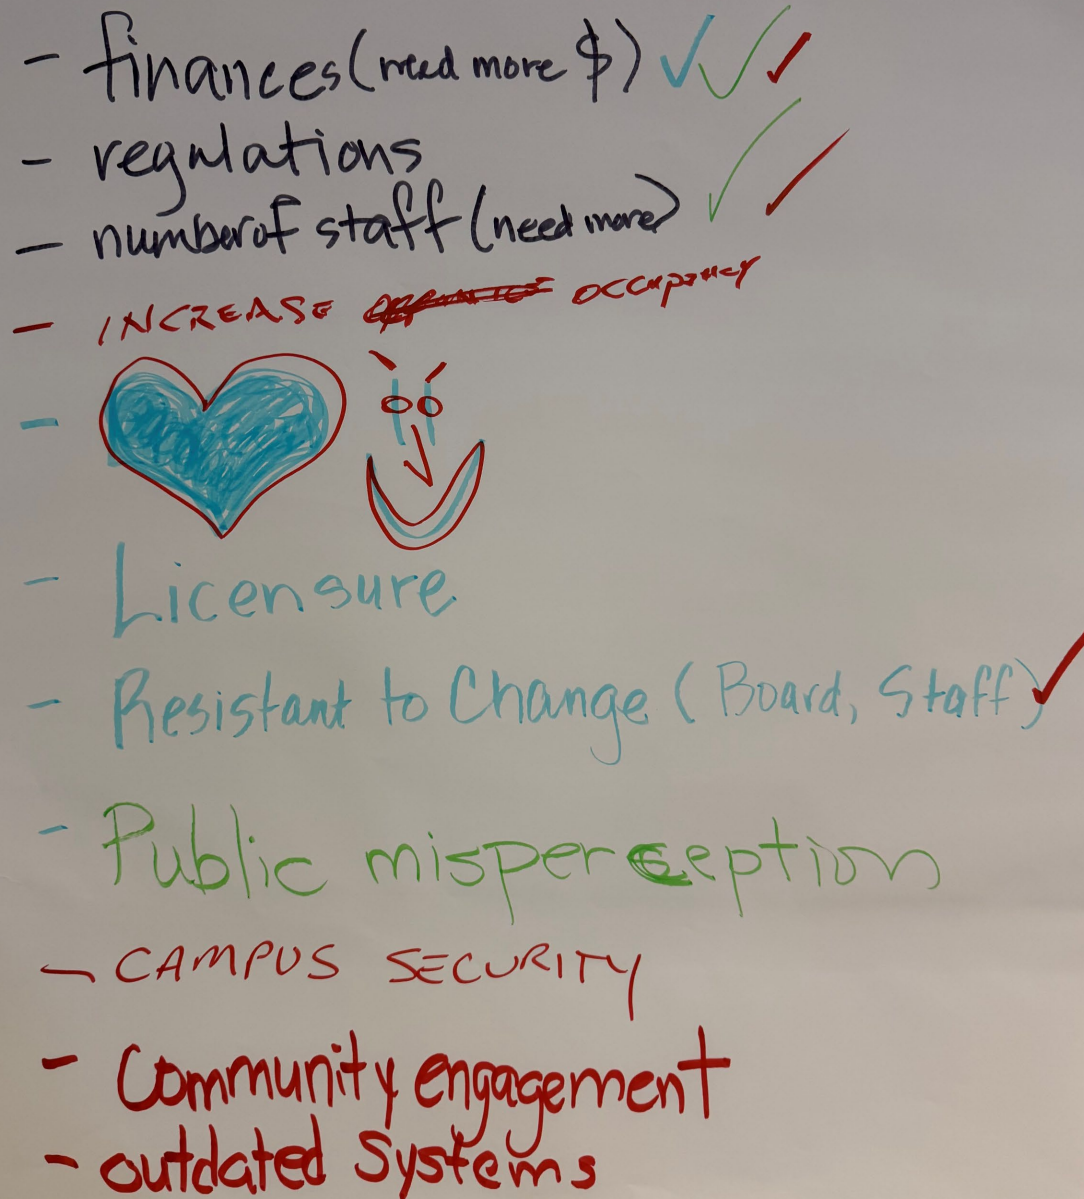 - finances (need more $) ✓ ✓ ✓
- regulations
- number of staff (need more) ✓ ✓
- INCREASE occupancy
-
- Licensure
- Resistant to Change (Board, Staff) ✓
- Public misperception
- CAMPUS SECURITY
- Community engagement
- outdated Systems